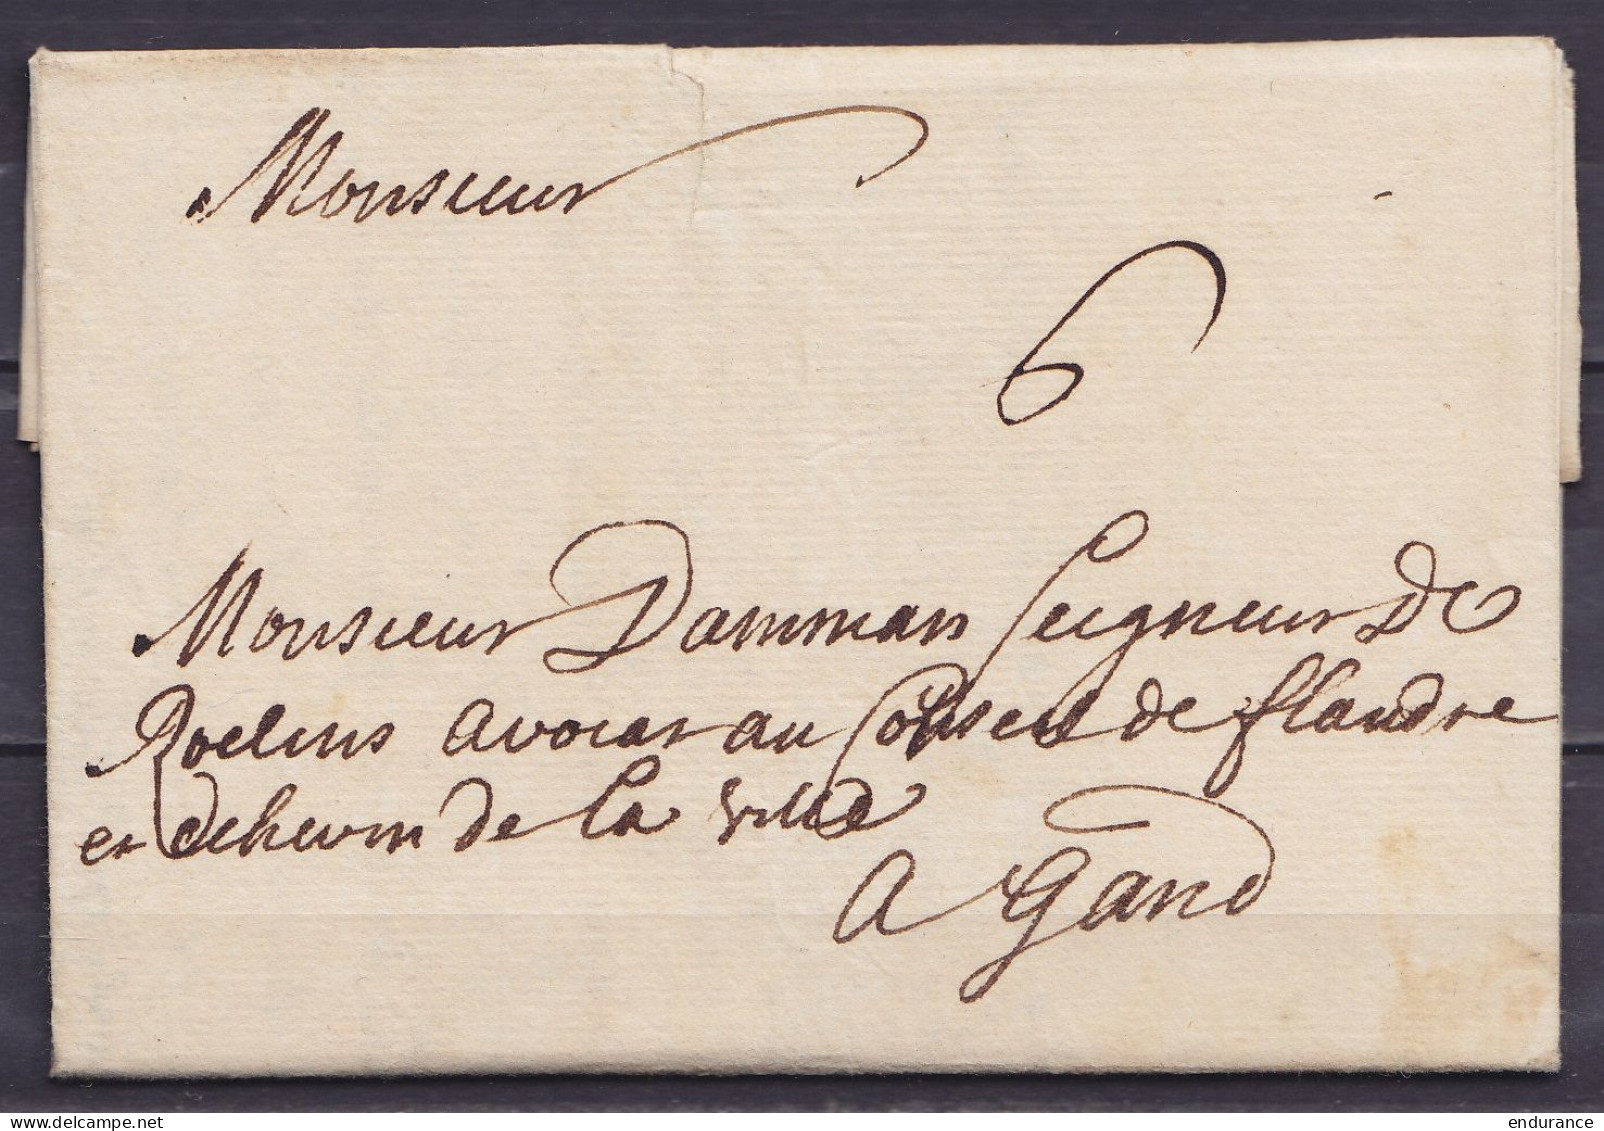 Monsieur
6
Monsieur Damman Seigneur de
Roelins avocat au Conseil de flandre
et echevin de la ville
A Gand
endurance
delcampe.net